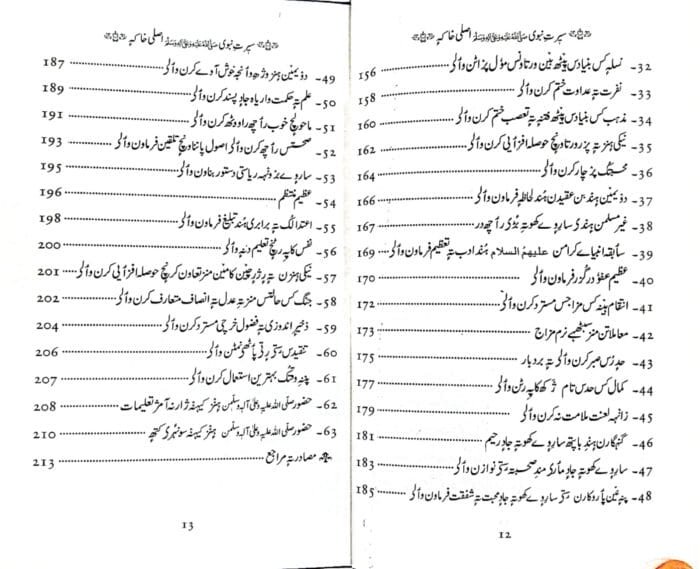 سیرت نبوی صلی اللہ علیہ وآلہ وسلم اصلی خاکہٕ
32- نسلہٕ کس بنیادس پیٹھ بنین ورتاونس مؤل پزانن وٲلی 156
33- نفرت تہٕ عداوت ختم کرن وٲلی 158
34- مذہب کس بنیادس پیٹھ فتنہٕ تہٕ تعصب ختم کرن وٲلی 160
35- نیکی ہنز تہٕ پزر ورتاونچ حوصلہ افزٲیی کرن وٲلی 162
36- محبتک پرچار کرن وٲلی 164
37- دۄیمین ہندین عقیدن ہند لحاظ فرماون وٲلی 166
38- غیر مسلمن ہندی سارِوے کھوتہٕ بٔڈی رٲچھدر 167
39- سابقہ انبیاے کرامن علیہم السلام ہند ادب تہٕ تعظیم فرماون وٲلی 169
40- عظیم عفو درگزر فرماون وٲلی 170
41- انتقام ہینہٕ کس مزاجس مسترد کرن وٲلی 172
42- معاملاتن منز سیٹھہے نرم مزاج 173
43- حدٕ رٔس صبر کرن وٲلی تہٕ بردبار 175
44- کمال کس حدس تام ژکھ کاپہٕ رٹن وٲلی 177
45- زانہہ لعنت ملامت نہٕ کرن وٲلی 179
46- گنہگارن ہندِ باپتھ سارِوے کھوتہٕ جادٕ رحیم 181
47- سارِوے کھوتہٕ جادٕ مٲری مندِ صحبتہٕ ستی نوازن وٲلی 183
48- پنہٕ نین پٲروکارن ستی سارِوے کھوتہٕ جادٕ محبت تہٕ شفقت فرماون وٲلی 185
12
سیرت نبوی صلی اللہ علیہ وآلہ وسلم اصلی خاکہٕ
49- دۄیمین ہنز وژھ وٲنجہ خوش آدے کرن وٲلی 187
50- علم تہٕ حکمت واریاہ جادٕ پسند کرن وٲلی 189
51- ماحولچ خوب رٲچھ راوٹھ کرن وٲلی 191
52- صحتس رٲچھ کرن وٲلی اصول پانناونچ تلقین فرماون وٲلی 193
53- سارِوے برونہہ ریاستی دستور بناون وٲلی 195
54- عظیم منتظم 196
55- اعتدالک تہٕ برابری ہند تبلیغ فرماون وٲلی 198
56- نفس کاپہٕ رٹنچ تعلیم دنہٕ وٲلی 200
57- نیکی ہنزن تہٕ پزر چین کامین منز تعاون کرنچ حوصلہ افزٲیی کرن وٲلی 201
58- جنگ کس حالتس منز تہٕ عدل تہٕ انصاف متعارف کرن وٲلی 202
59- ذخیرٕ اندوزی تہٕ فضول خرچی مسترد کرن وٲلی 204
60- تنقیدس ستی برتی پٲٹھی نمٹن وٲلی 206
61- پننہ وقتک بہترین استعمال کرن وٲلی 207
62- حضور صلی اللہ علیہ وعلیٰ آلہ وسلمن ہنز کینہہ ژٲرنہ آمژ تعلیمات 208
63- حضور صلی اللہ علیہ وعلیٰ آلہ وسلمن ہنز کینہہ سونہری کتھ 210
مصادر تہٕ مراجع 213
13